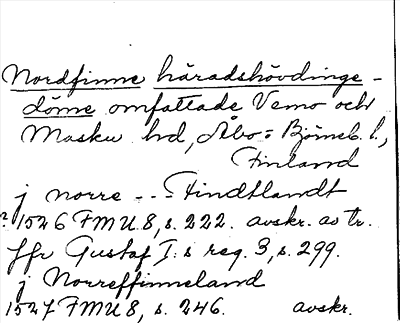 Nordfinne häradshövdinge-
döme omfattade Vemo och
Masku hd, Åbo-Björneb. l.,
Finland
j norre --- Findtlandt
? 1526 FMU.8, s. 222. avskr. av tr.
jfr Gustaf I:s reg. 3, s. 299.
j Norreffinneland
1527 FMU 8, s. 246. avskr.